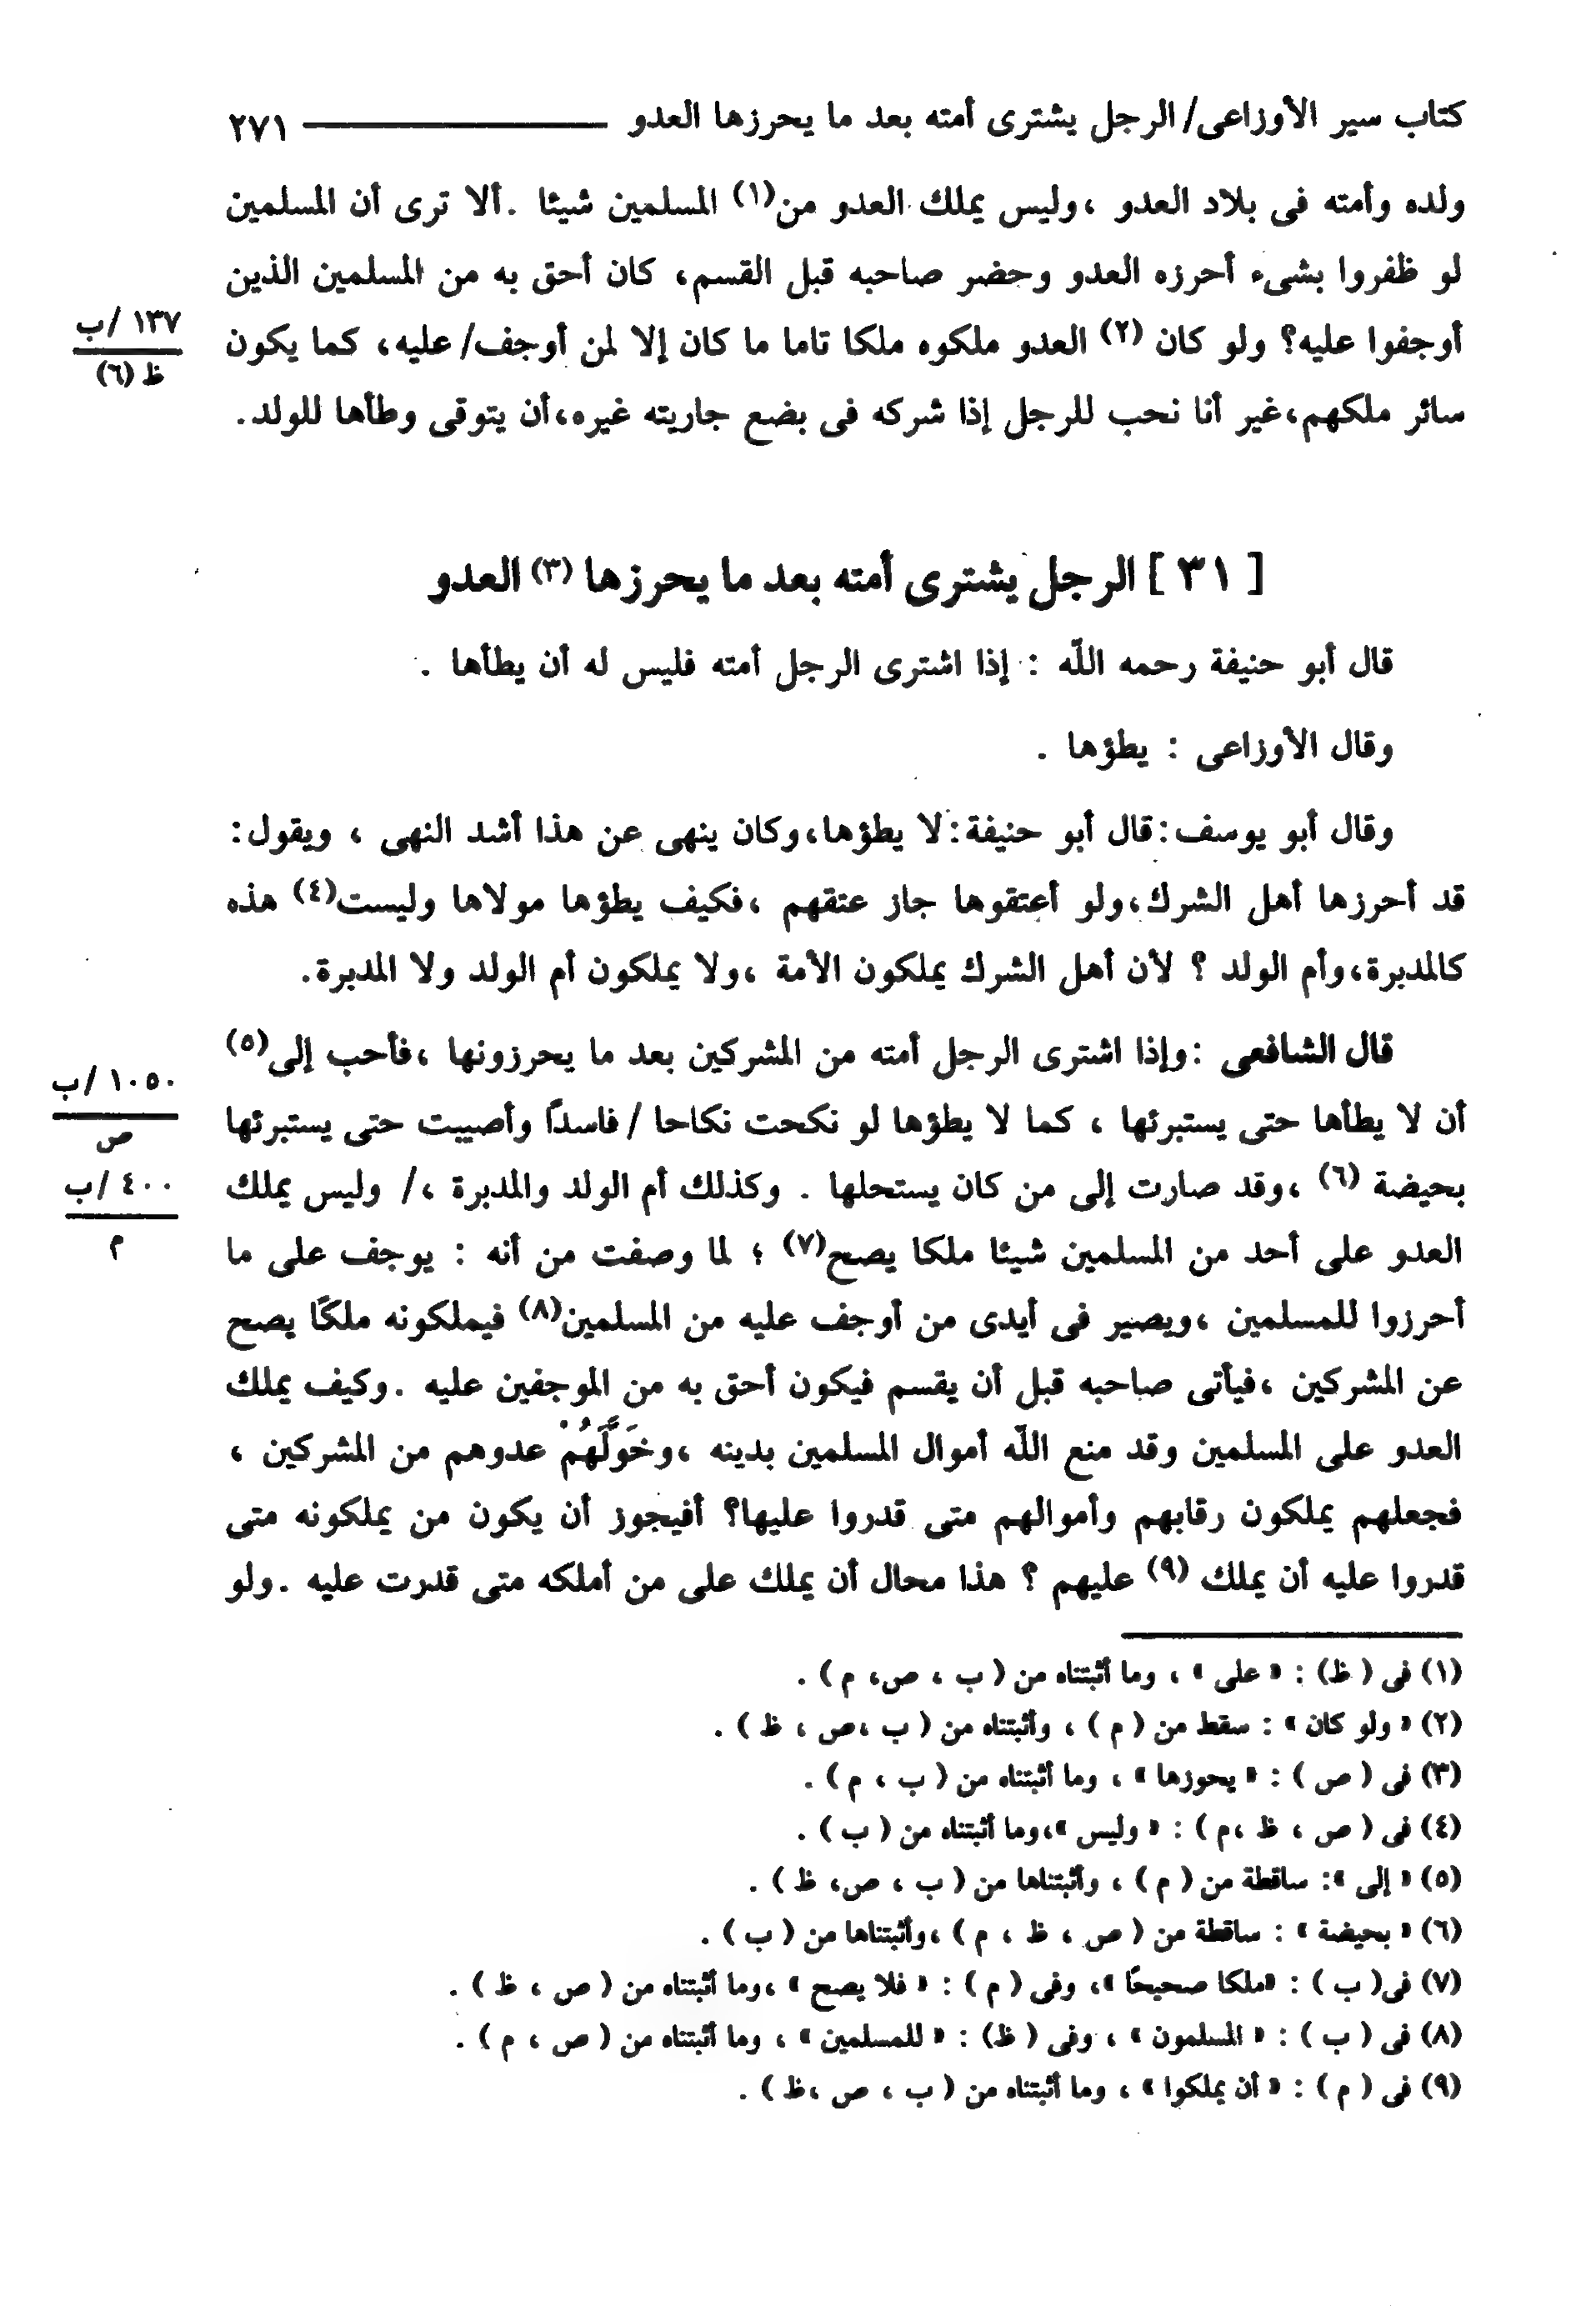 كتاب سير الأوزاعى/ الرجل يشترى أمته بعد ما يحرزها العدو ٢٧١
ولده وأمته فى بلاد العدو ،وليس يملك العدو من(١) المسلمين شيئا .ألا ترى أن المسلمين
لو ظفروا بشىء أحرزه العدو وحضر صاحبه قبل القسم، كان أحق به من المسلمين الذين
أوجفوا عليه؟ ولو كان (٢) العدو ملكوه ملكا تاما ما كان إلا لمن أوجف/ عليه، كما يكون
١٣٧ /ب
ظ (٦)
سائر ملكهم،غير أنا نحب للرجل إذا شركه فى بضع جاريته غيره،أن يتوقى وطأها للولد.
[ ٣١ ] الرجل يشترى أمته بعد ما يحرزها (٣) العدو
قال أبو حنيفة رحمه اللّه : إذا اشترى الرجل أمته فليس له أن يطأها .
وقال الأوزاعى : يطؤها .
وقال أبو يوسف:قال أبو حنيفة:لا يطؤها،وكان ينهى عن هذا أشد النهى ، ويقول:
قد أحرزها أهل الشرك،ولو أعتقوها جاز عتقهم ،فكيف يطؤها مولاها وليست(٤) هذه
كالمدبرة،وأم الولد ؟ لأن أهل الشرك يملكون الأمة ،ولا يملكون أم الولد ولا المدبرة.
قال الشافعى :وإذا اشترى الرجل أمته من المشركين بعد ما يحرزونها ،فأحب إلى(٥)
١٠٥٠ /ب
ص
أن لا يطأها حتى يستبرئها ، كما لا يطؤها لو نكحت نكاحا /فاسدًا وأصيبت حتى يستبرئها
بحيضة (٦) ،وقد صارت إلى من كان يستحلها . وكذلك أم الولد والمدبرة ،/ وليس يملك
٤٠٠ /ب
م
العدو على أحد من المسلمين شيئا ملكا يصح(٧) ؛ لما وصفت من أنه : يوجف على ما
أحرزوا للمسلمين ،ويصير فى أيدى من أوجف عليه من المسلمين(٨) فيملكونه ملكًا يصح
عن المشركين ،فيأتى صاحبه قبل أن يقسم فيكون أحق به من الموجفين عليه .وكيف يملك
العدو على المسلمين وقد منع اللّه أموال المسلمين بدينه ،وخَوَّلَهُمْ عدوهم من المشركين ،
فجعلهم يملكون رقابهم وأموالهم متى قدروا عليها؟ أفيجوز أن يكون من يملكونه متى
قدروا عليه أن يملك (٩) عليهم ؟ هذا محال أن يملك على من أملكه متى قدرت عليه .ولو
(١) فى ( ظ) : « على » ، وما أثبتناه من ( ب ، ص، م ) .
(٢) « ولو كان » : سقط من ( م ) ، وأثبتناه من ( ب ،ص ، ظ ) .
(٣) فى ( ص ) : « يحوزها » ، وما أثبتناه من ( ب ، م ) .
(٤) فى ( ص ، ظ ،م ) : « وليس »،وما أثبتناه من ( ب ) .
(٥) « إلى »: ساقطة من ( م ) ، وأثبتناها من ( ب ، ص، ظ ) .
(٦) « بحيضة » : ساقطة من ( ص ، ظ ، م ) ،وأثبتناها من ( ب ) .
(٧) فى( ب ) : «ملكا صحيحًا »، وفى ( م ) : « فلا يصح » ،وما أثبتناه من ( ص ، ظ ) .
(٨) فى ( ب ) : « المسلمون » ، وفى ( ظ) : « للمسلمين » ، وما أثبتناه من ( ص ، م ) .
(٩) فى ( م ) : « أن يملكوا » ، وما أثبتناه من ( ب ، ص ،ظ ) .